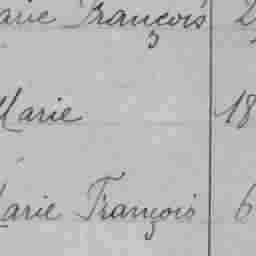 Marie François 2
Marie 18
Marie François 6